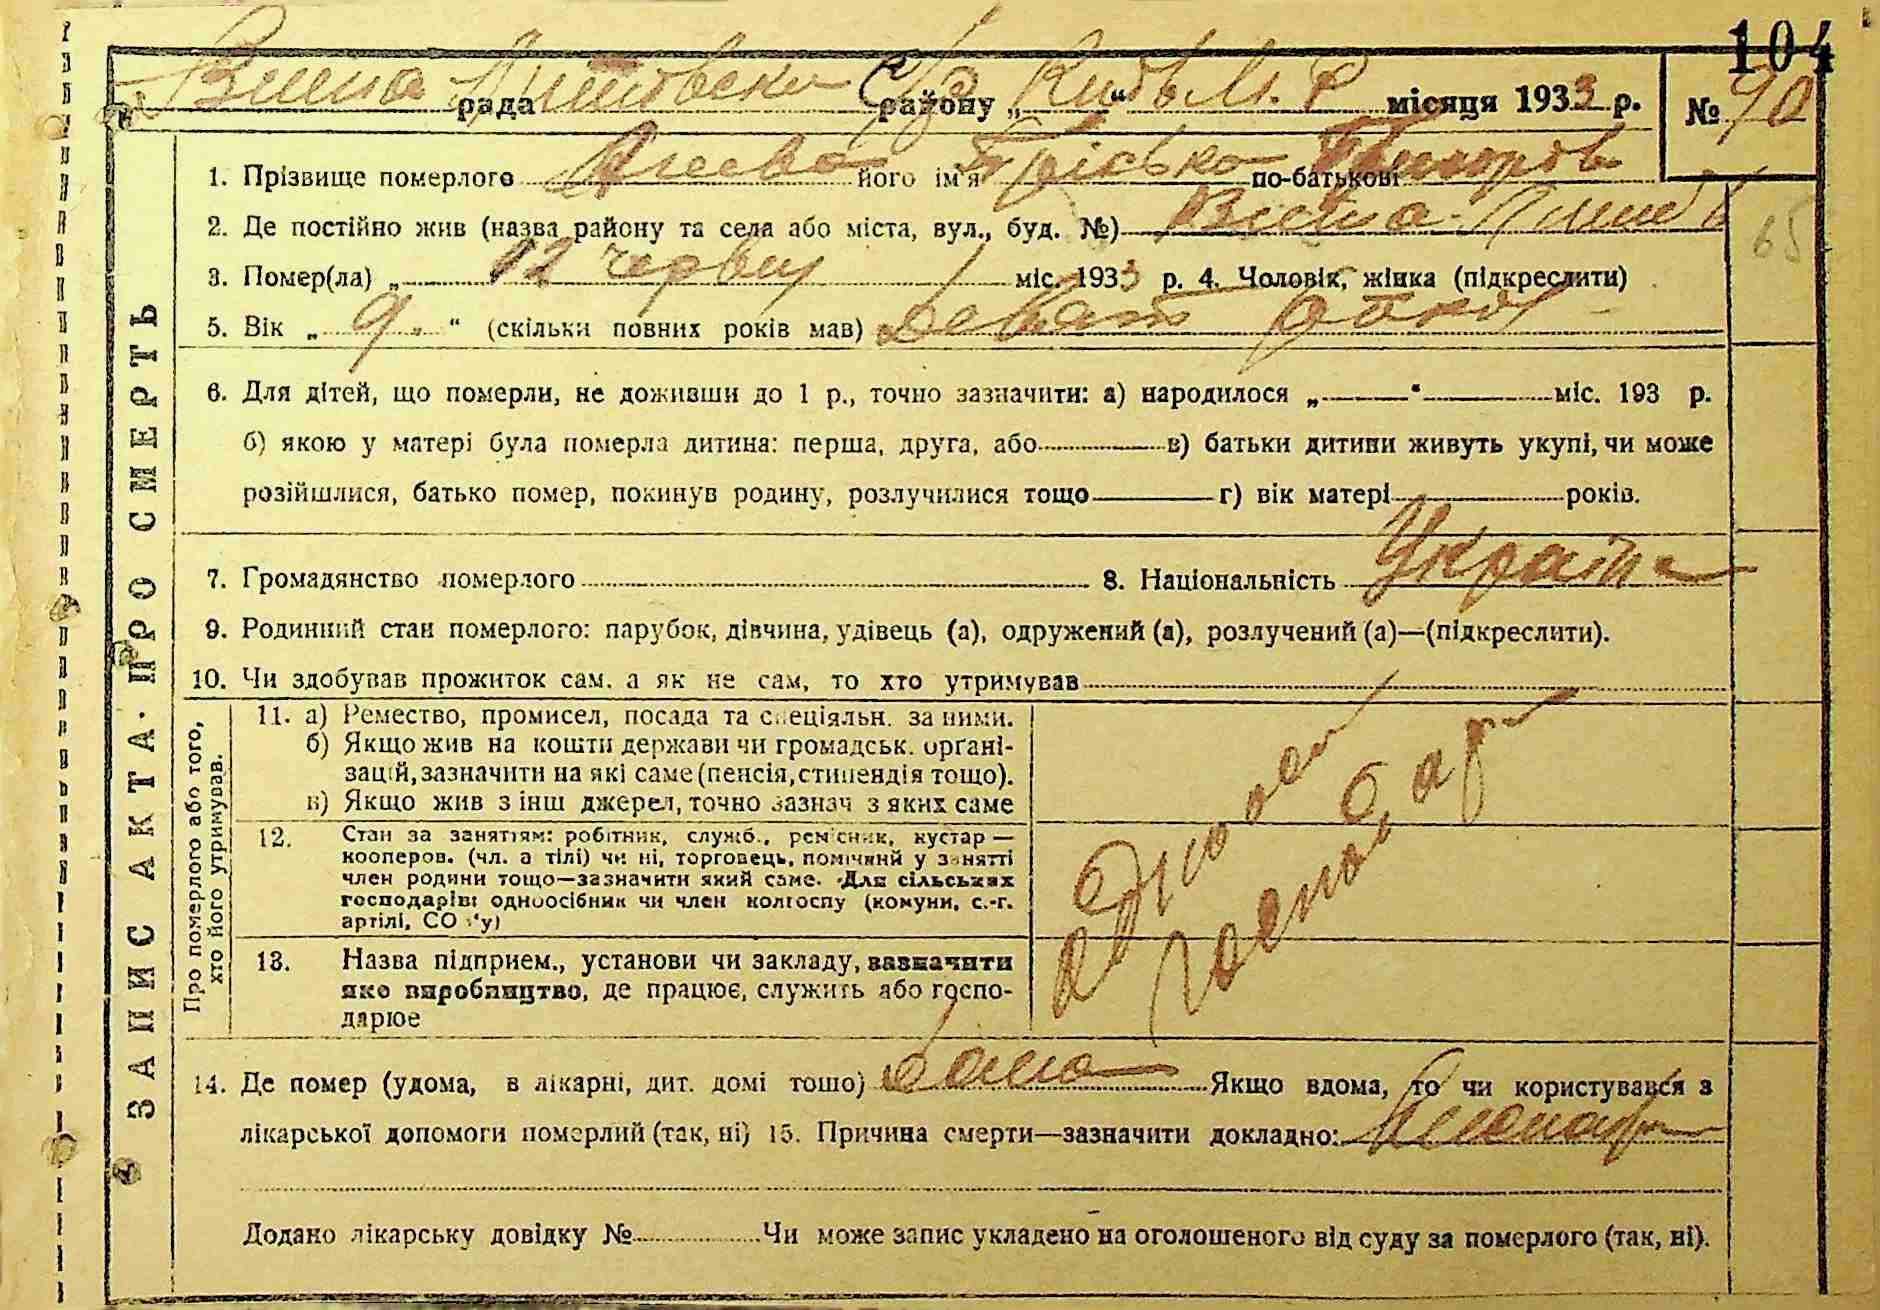 104
рада району „ “ місяця 1933 р. № 90
1. Прізвище померлого його ім'я Грісько по-батькові
2. Де постійно жив (назва району та села або міста, вул., буд. №)
65
3. Помер(ла) „ 12 червня міс. 1933 р. 4. Чоловік, жінка (підкреслити)
5. Вік „ 9 “ (скільки повних років мав)
6. Для дітей, що померли, не доживши до 1 р., точно зазначити: а) народилося „ “ міс. 193 р.
б) якою у матері була померла дитина: перша, друга, або в) батьки дитини живуть укупі, чи може
розійшлися, батько помер, покинув родину, розлучилися тощо г) вік матері років.
7. Громадянство померлого 8. Національність Україн
9. Родинний стан померлого: парубок, дівчина, удівець (а), одружений (а), розлучений (а)—(підкреслити).
10. Чи здобував прожиток сам, а як не сам, то хто утримував
ЗАПИС АКТА ПРО СМЕРТЬ
Про померлого або того,
хто його утримував.
11. а) Ремество, промисел, посада та спеціяльн. за ними.
б) Якщо жив на кошти держави чи громадськ. орґані-
зацій, зазначити на які саме (пенсія, стипендія тощо).
в) Якщо жив з інш джерел, точно зазнач з яких саме
12. Стан за заняттям: робітник, служб., ремісник, кустар —
кооперов. (чл. а тілі) чи ні, торговець, помічний у занятті
член родини тощо—зазначити який саме. Для сільських
господарів: одноосібник чи член колгоспу (комуни, с.-г.
артілі, СО у)
13. Назва підприєм., установи чи закладу, зазначити
яке виробництво, де працює, служить або госпо-
дарює
14. Де помер (удома, в лікарні, дит. домі тощо) дома Якщо вдома, то чи користувався з
лікарської допомоги померлий (так, ні) 15. Причина смерти—зазначити докладно:
Додано лікарську довідку № Чи може запис укладено на оголошеного від суду за померлого (так, ні).